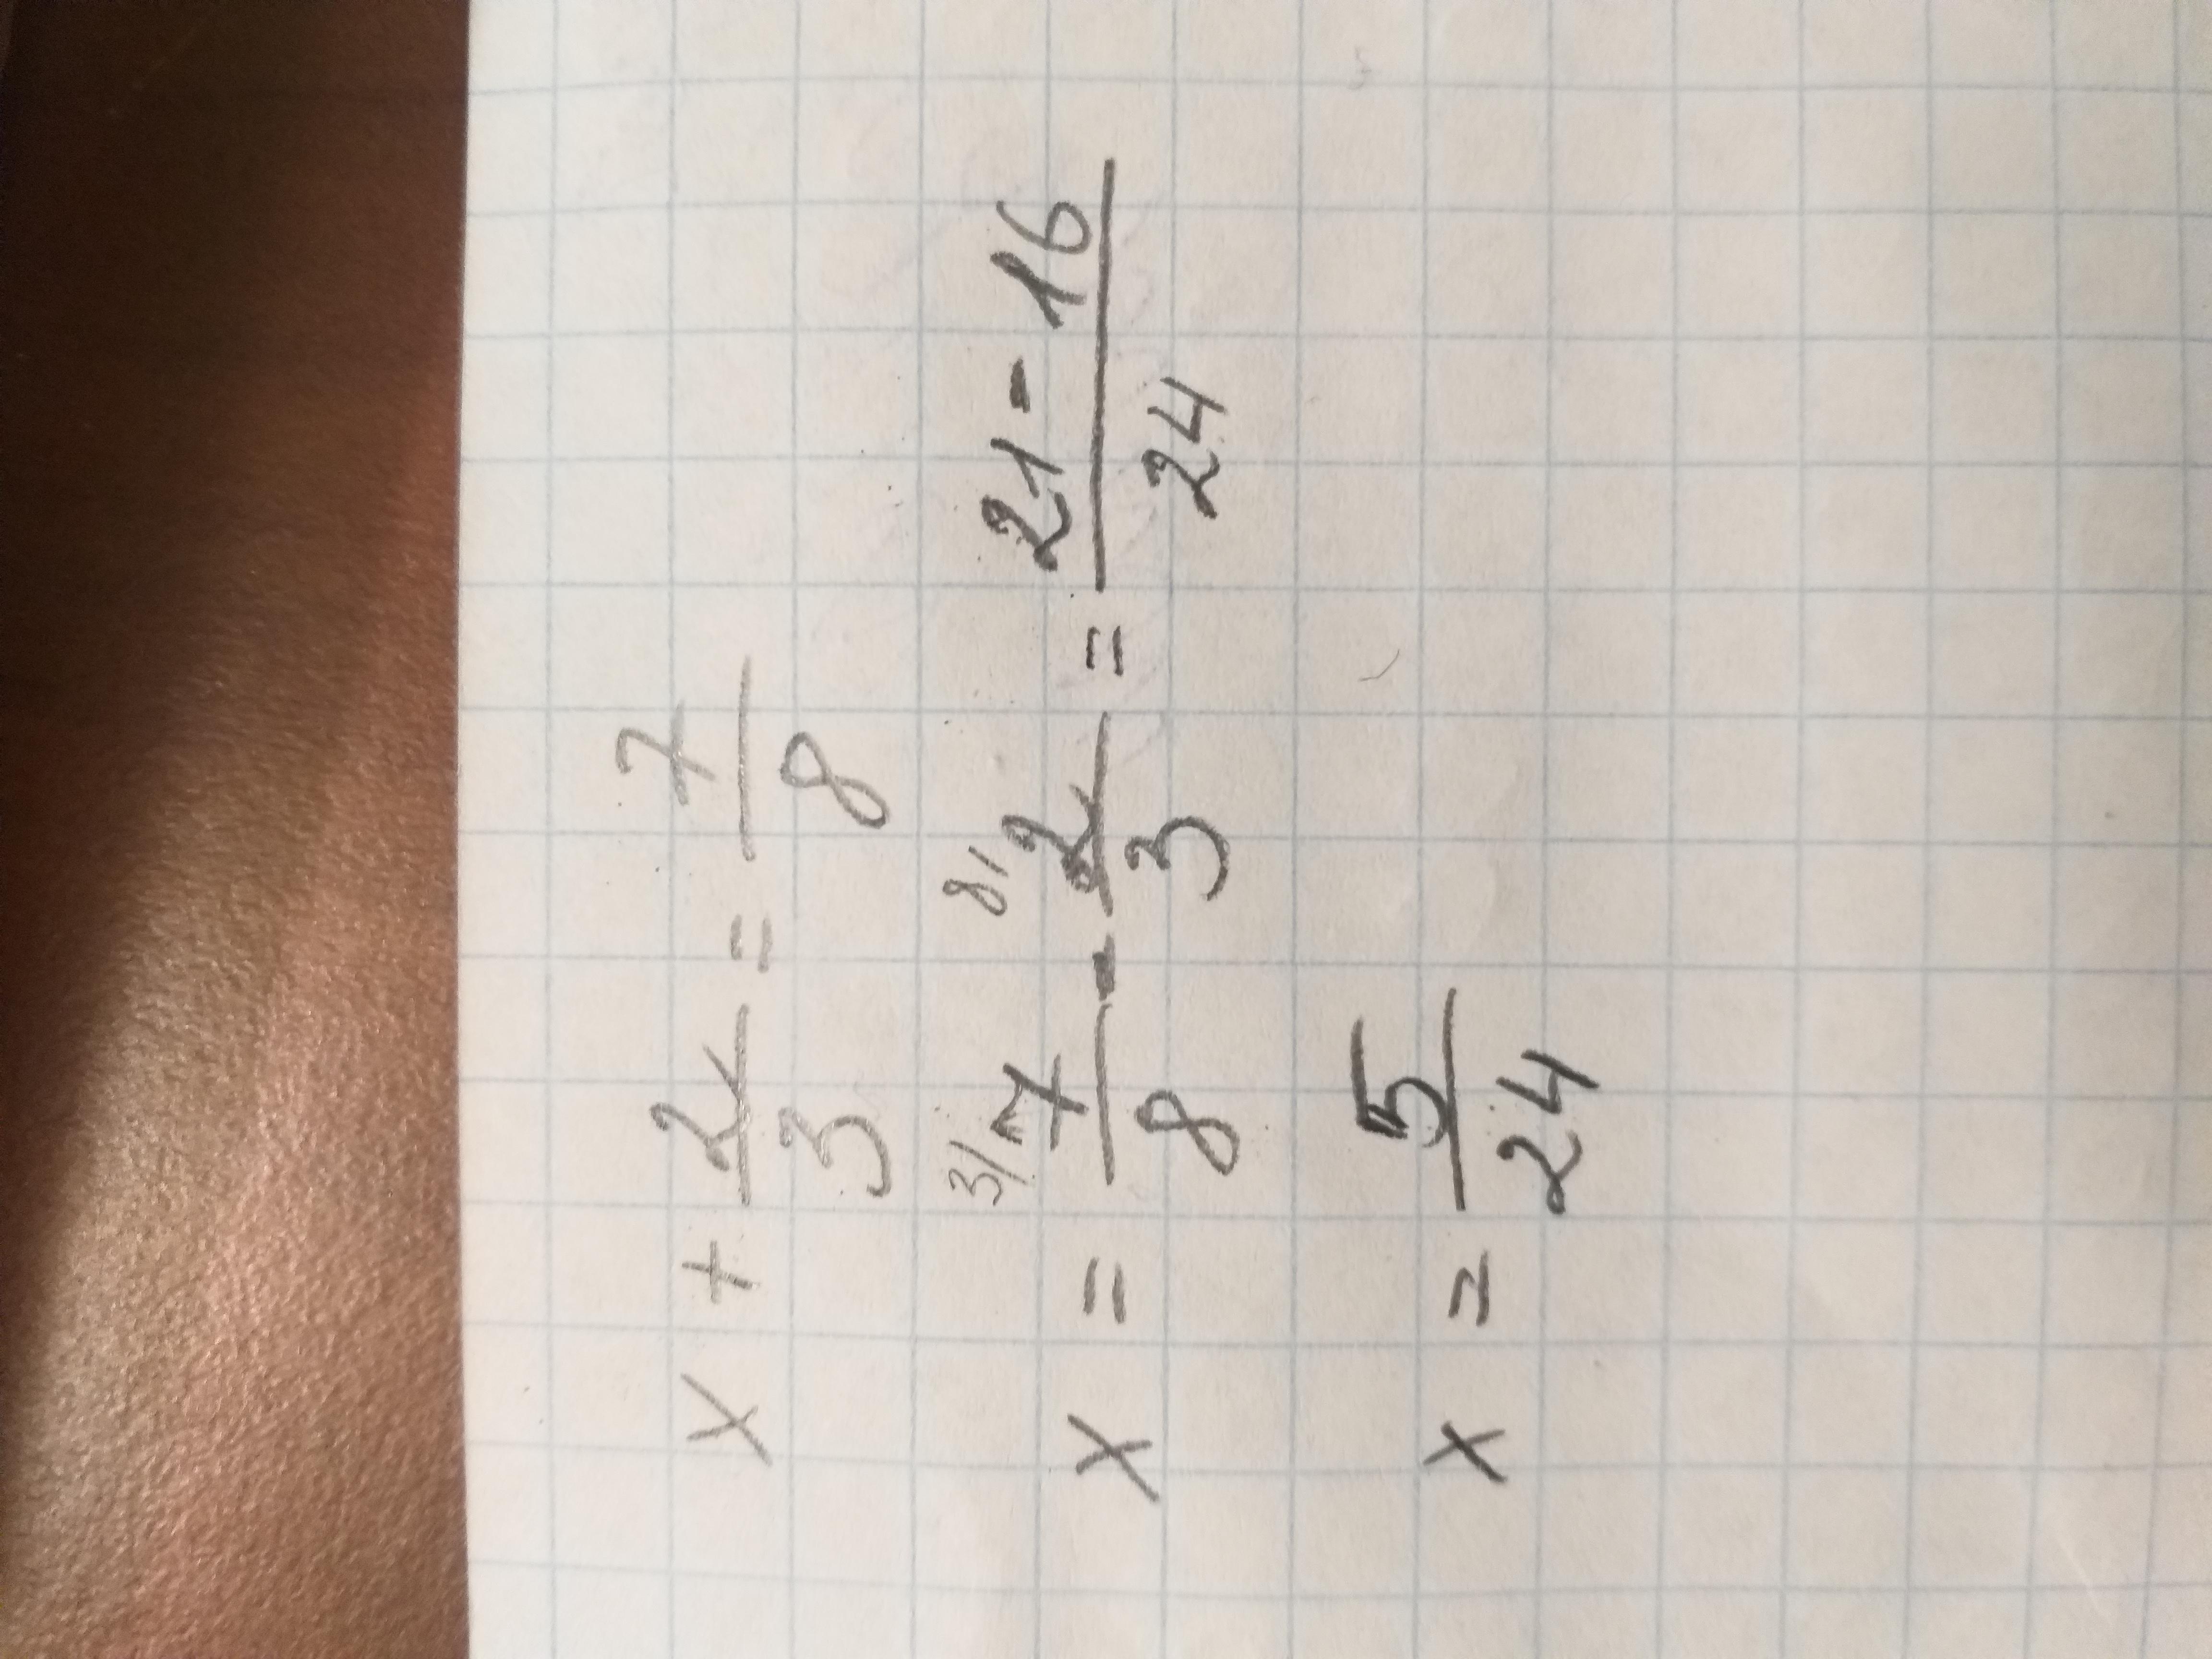 x + 2/3 = 7/8
x = 3/ 7/8 - 8/ 2/3 = 21-16/24
x = 5/24